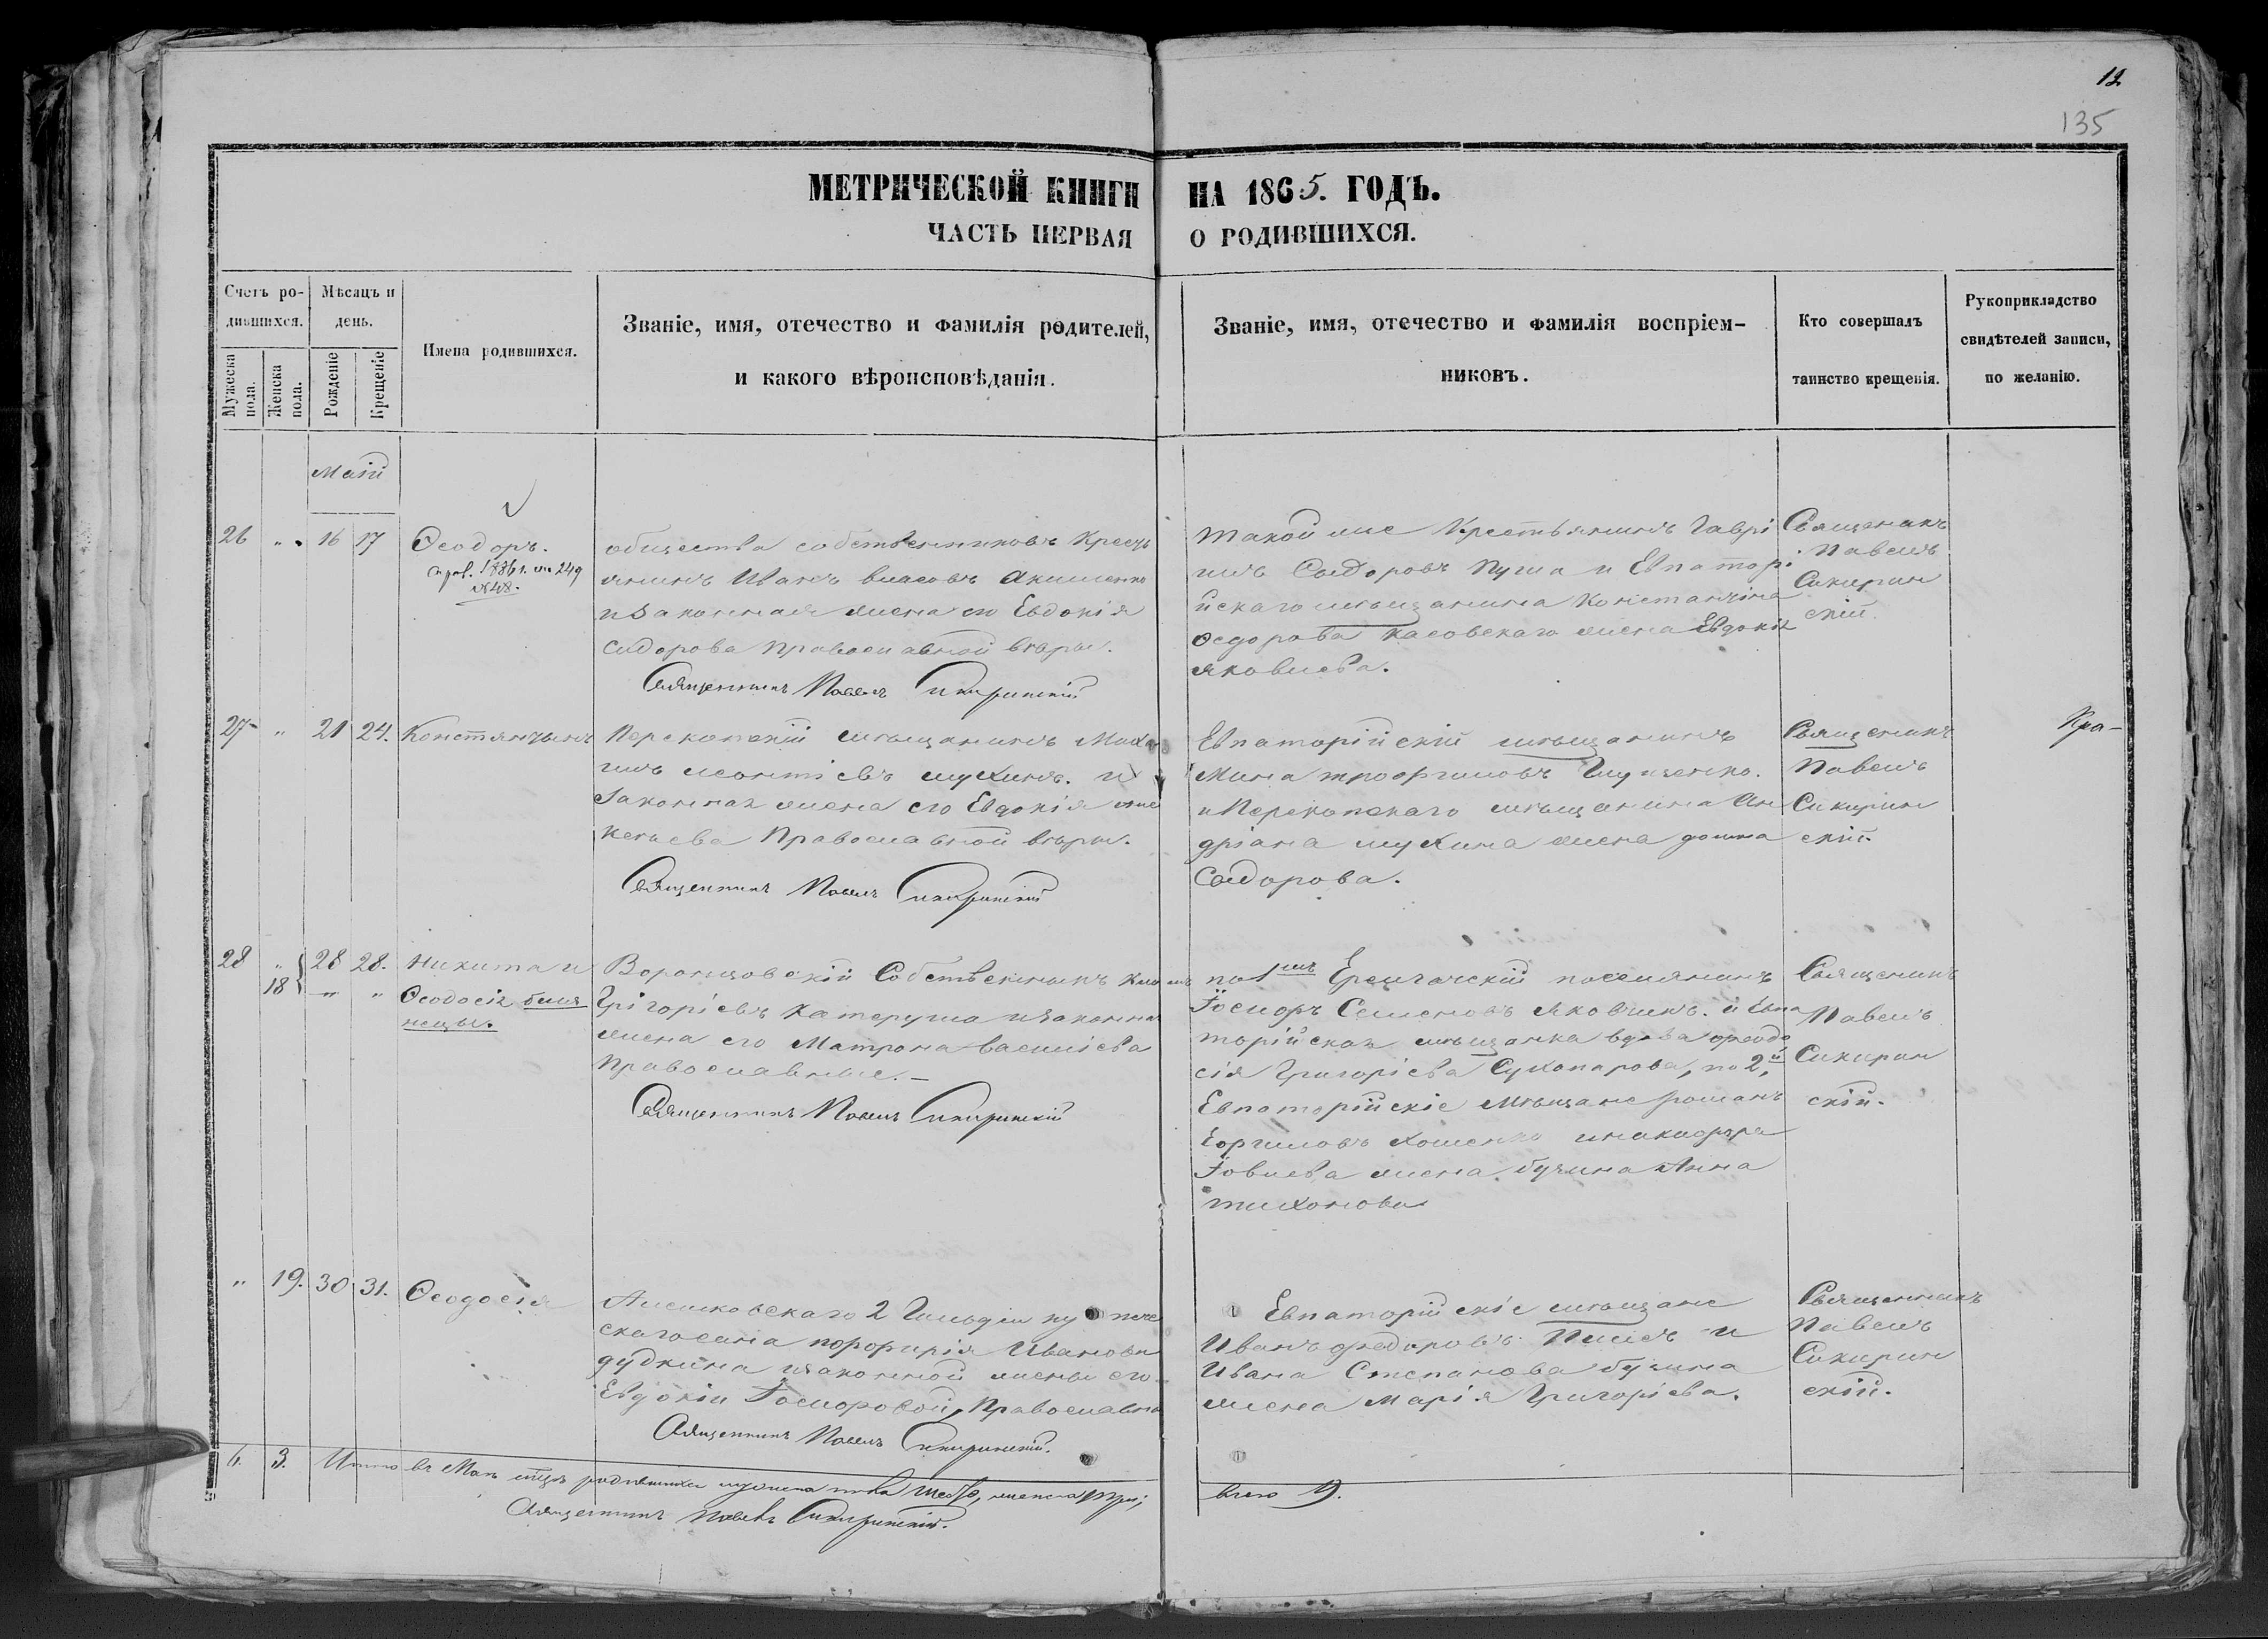 12
135
МЕТРИЧЕСКОЙ КНИГИ НА 1865. ГОДЪ.
ЧАСТЬ ПЕРВАЯ О РОДИВШИХСЯ.
Счетъ ро-
дившихся.
Мужеска пола.
Женска пола.
Мѣсяцъ и
день.
Рожденіе
Крещеніе
Имена родившихся.
Званіе, имя, отечество и фамилія родителей,
и какого вѣроисповѣданія.
Званіе, имя, отечество и фамилія воспріем-
никовъ.
Кто совершалъ
таинство крещенія.
Рукоприкладство
свидѣтелей записи,
по желанію.
Маій
26 " 16 17
Ѳеодоръ.
1886 г. 249
№48.
общества собственниковъ Крест
янинъ Иванъ Власовъ Акименко
и Законная жена его Евдокія
Сидорова Православной вѣры.
Священникъ Павелъ Сикиринскій
Такой же Крестьянинъ Гаврі
илъ Сыдоровъ Пуша и Евпатор
ійскаго мѣщанина Константина
Ѳедорова Касовскаго жена Евдокія
Яковлева.
Священикъ
Павелъ
Сикирин
скій.
27 " 21 24.
Константынъ
Перекопскій мѣщанинъ Миха
илъ Леонтіевъ Мухинъ. и
Законная жена его Евдокія
Православной вѣры.
Священникъ Павелъ Сикиринскій
Евпаторійскій мѣщанинъ
Мина Трофимовъ
и Перекопскаго мѣщанина Ан
дріана Мухина жена Домна
Сыдорова.
Священикъ
Павелъ
Сикирин
скій.
Кра-
28 " 28 28.
18 " "
Никита и
Ѳеодосія близ
нецы.
Воронцовскій Собственникъ
Грігорієвъ Катеруша и законна
жена его Матрона Василіева
Православные. –
Священникъ Павелъ Сикиринскій
по 1мъ поселянинъ
Іосифъ Семеновъ Яковчикъ. и Евпа
торійская мѣщанка вдова Феодо
сія Григоріева Сухопарова, по 2й,
Евпаторійскіе Мѣщане Романъ
жена Бучина Анна
Тихонова
Священикъ
Павелъ
Сикирин
скій.
" 19. 30 31.
Ѳеодосія
Алешковскаго 2 Гильдіи купече
скаго сына Порфирія Иванова
Дудкина и законной жены его
Евдокіи Православны
Священникъ Павелъ Сикиринскій.
Евпаторійскіе мѣщане
Иванъ Федоровъ и
Ивана Степанова Бучина
жена Марія Григоріева.
Священникъ
Павелъ
Сикирин
скій.
6. 3. Итого въ Маѣ мѣсяцѣ родившихся мужеска пола шесть, женска три;
всего 9.
Священникъ Павелъ Сикиринскій.